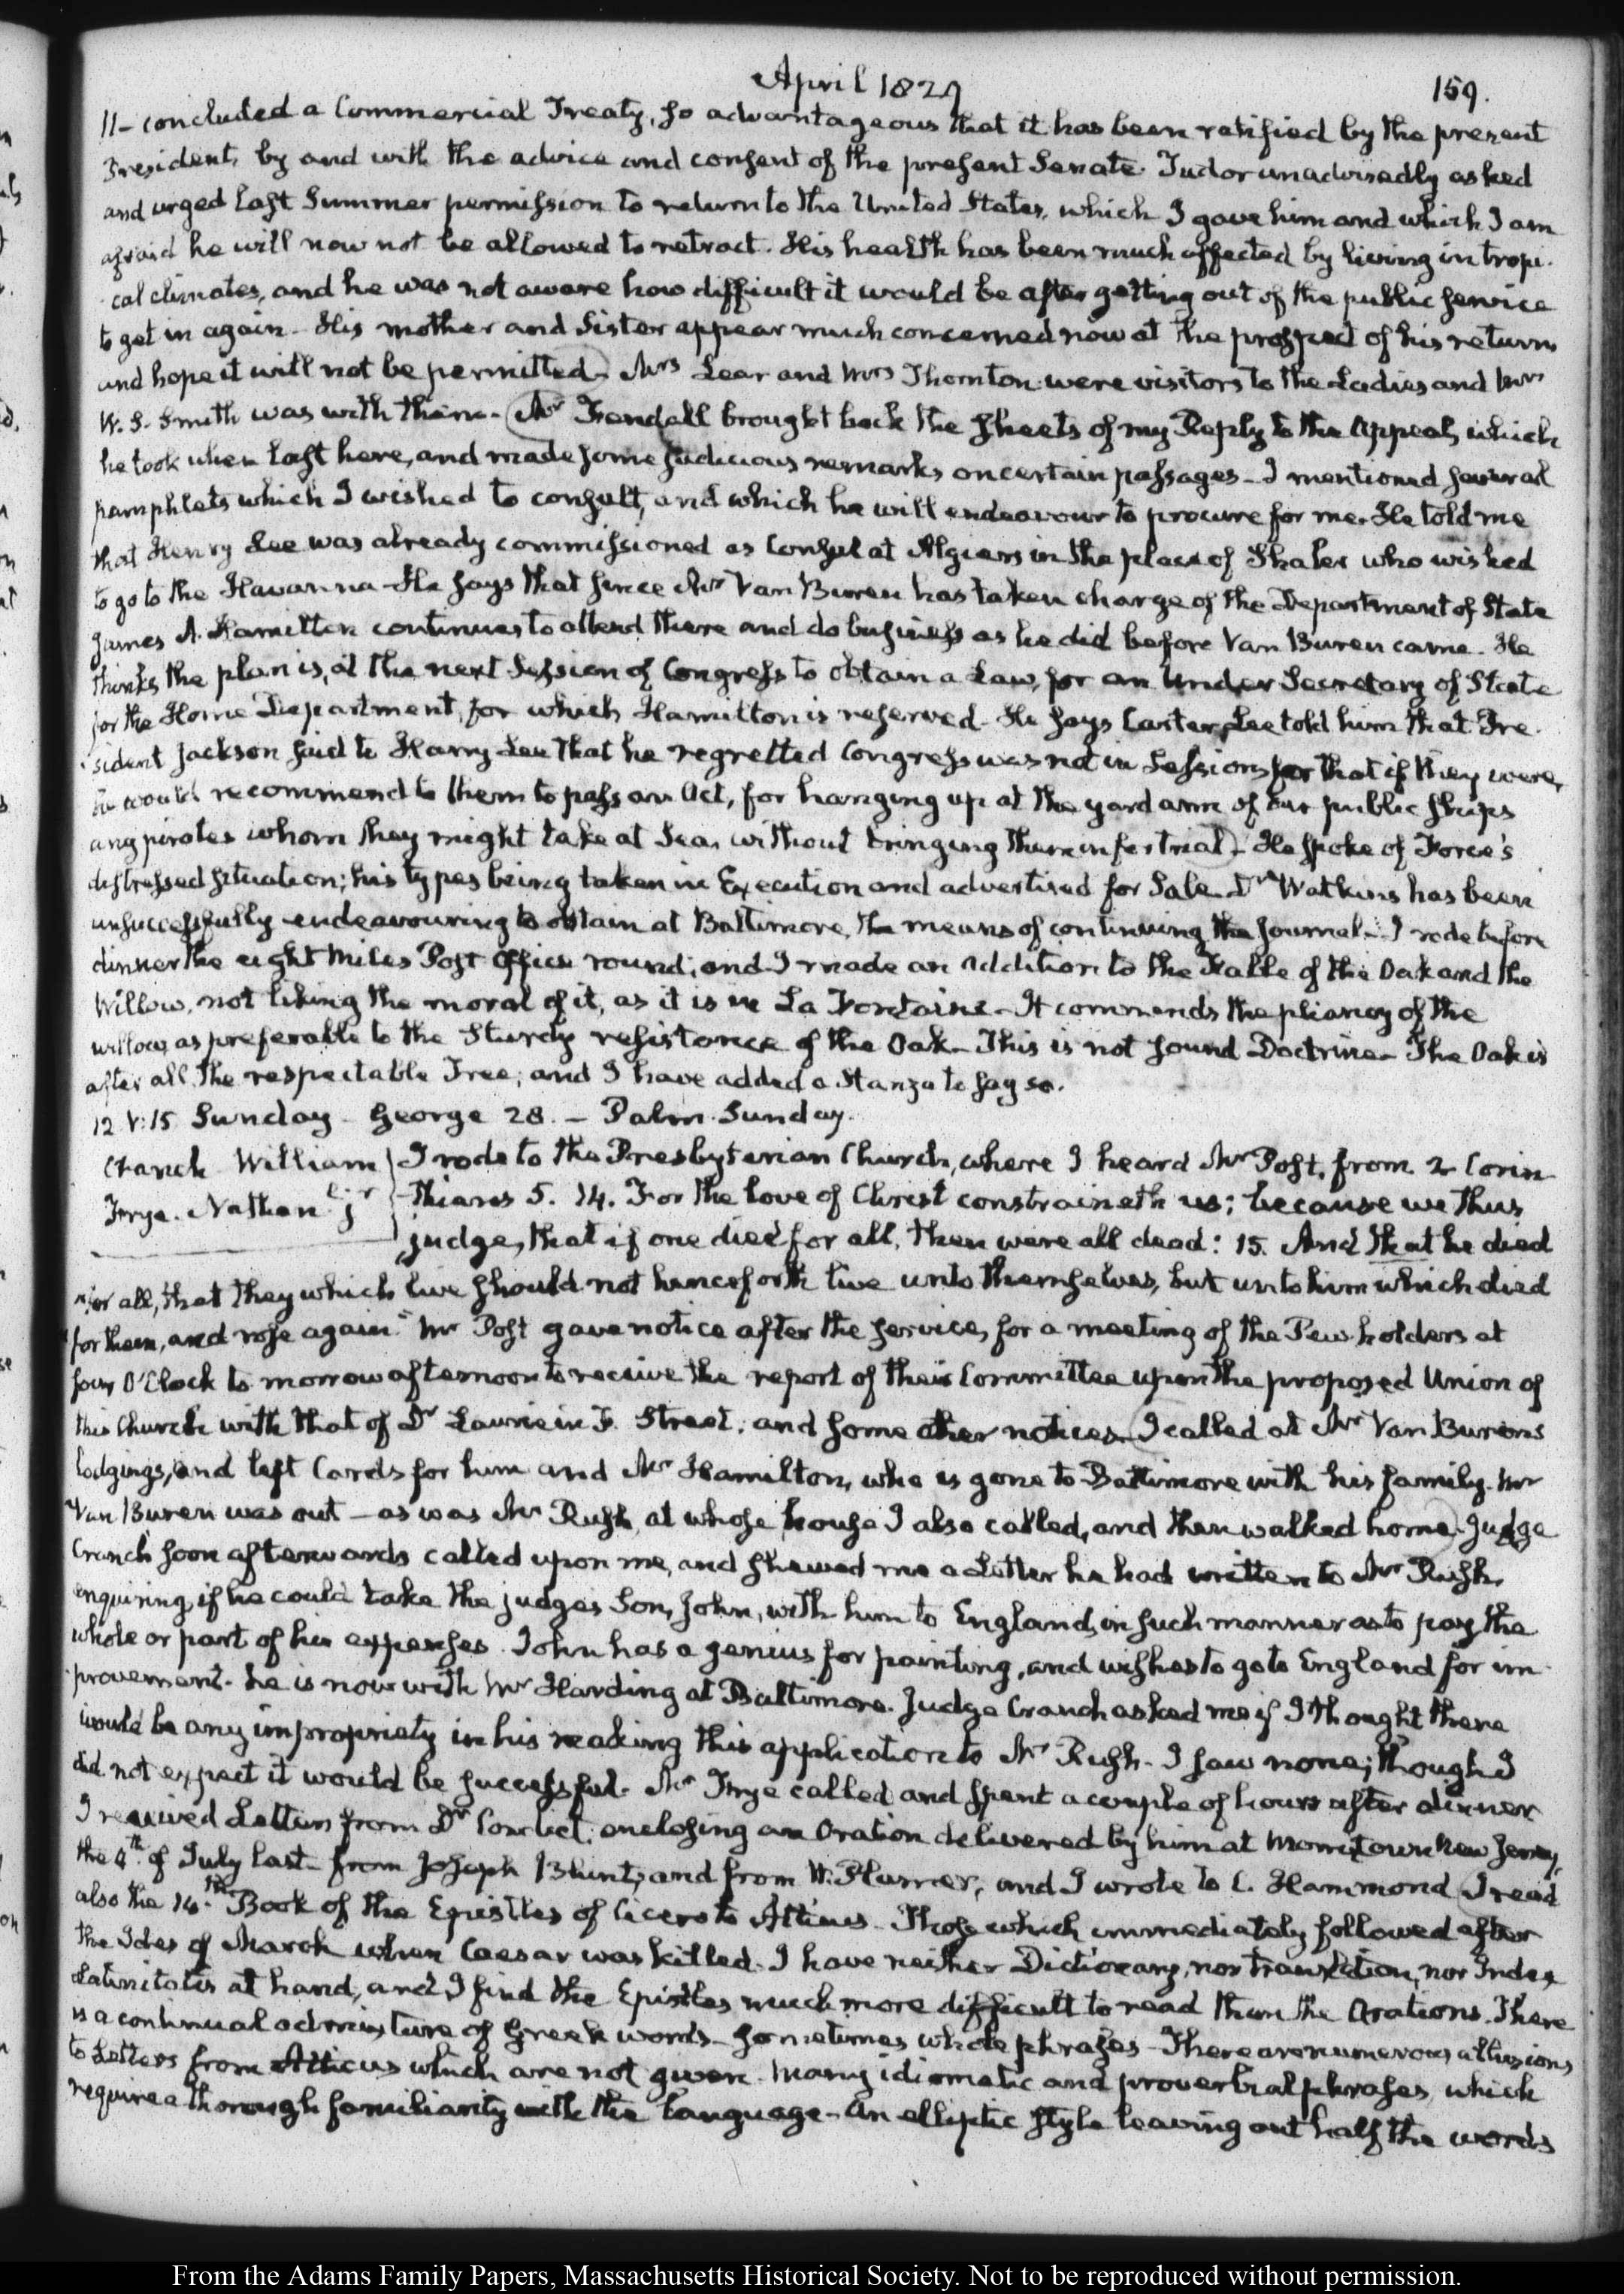 April 1829
159.
11- concluded a Commercial Treaty, so advantageous that it has been ratified by the present
President, by and with the advice and consent of the present Senate. Tudor unadvisedly asked
and urged last Summer permission to return to the United States, which I gave him and which I am
afraid he will now not be allowed to retract. His health has been much affected by living in tropi-
cal climates, and he was not aware how difficult it would be after getting out of the public service
to get in again. His mother and Sister appear much concerned now at the prospect of his return
and hope it will not be permitted. Mrs Lear and Mrs Thornton were visitors to the Ladies and Mrs
W. S. Smith was with them. Mr Kendall brought back the sheets of my Reply to the Appeal, which
he took when last here, and made some judicious remarks on certain passages - I mentioned several
pamphlets which I wished to consult, and which he will endeavour to procure for me. He told me
that Henry Lee was already commissioned as Consul at Algiers in the place of Shaler who wished
to go to the Havanna - He says that since Mr Van Buren has taken charge of the Department of State
James A. Hamilton continues to attend there and do business as he did before Van Buren came. He
thinks the plan is, at the next Session of Congress to obtain a Law, for an Under Secretary of State
for the Home Department, for which Hamilton is reserved. He says Carter Lee told him that Pre-
sident Jackson said to Harry Lee that he regretted Congress was not in Session, for that if they were,
he would recommend to them to pass an Act, for hanging up at the yard arm of our public ships
any pirates whom they might take at Sea, without bringing them in for trial - He spoke of Force's
distressed situation; his types being taken in Execution and advertised for Sale. Dr Watkins has been
unsuccessfully endeavouring to obtain at Baltimore, the means of continuing the Journal - I rode before
dinner the eight Miles Post Office round; and I made an addition to the Fable of the Oak and the
Willow, not liking the moral of it, as it is in La Fontaine - It commends the pliancy of the
willow, as preferable to the Sturdy resistance of the Oak - This is not sound Doctrine - The Oak is
after all, the respectable Tree; and I have added a Stanza to say so.
12. V:15 Sunday - George 28. - Palm Sunday.
Cranch William I rode to the Presbyterian Church, where I heard Mr Post, from 2 Corin-
Frye. Nathan jr thians 5. 14. For the love of Christ constraineth us; because we thus
judge, that if one died for all, then were all dead: 15. And that he died
"for all, that they which live should not henceforth live unto themselves, but unto him which died
"for them, and rose again." Mr Post gave notice after the service, for a meeting of the Pew-holders at
four O'Clock to morrow afternoon to receive the report of their Committee upon the proposed Union of
this Church with that of Dr Laurie in F. Street; and some other notices. I called at Mr Van Burens
lodgings, and left Cards for him and Mr Hamilton, who is gone to Baltimore with his family. Mr
Van Buren was out - as was Mr Rush, at whose house I also called, and then walked home. Judge
Cranch soon afterwards called upon me, and shewed me a Letter he had written to Mr Rush,
enquiring if he could take the judge's Son, John, with him to England, in such manner as to pay the
whole or part of his expenses. John has a genius for painting, and wishes to go to England for im-
provement. he is now with Mr Harding at Baltimore. Judge Cranch asked me if I thought there
would be any impropriety in his making this application to Mr Rush - I saw none; though I
did not expect it would be successful. Mr Frye called and spent a couple of hours after dinner
I received Letters from Dr Condict, enclosing an Oration delivered by him at Morristown New Jersey,
the 4th of July last - from Joseph Blunt, and from W. Plumer, and I wrote to C. Hammond. I read
also the 14th Book of the Epistles of Cicero to Atticus - Those which immediately followed after
the Ides of March when Caesar was killed. I have neither Dictionary, nor translation, nor Index
Latinitatis at hand, and I find the Epistles much more difficult to read than the Orations. There
is a continual admixture of Greek words - sometimes whole phrases - There are numerous allusions
to Letters from Atticus which are not given. Many idiomatic and proverbial phrases, which
require a thorough familiarity with the language - an elliptic style leaving out half the words
From the Adams Family Papers, Massachusetts Historical Society. Not to be reproduced without permission.